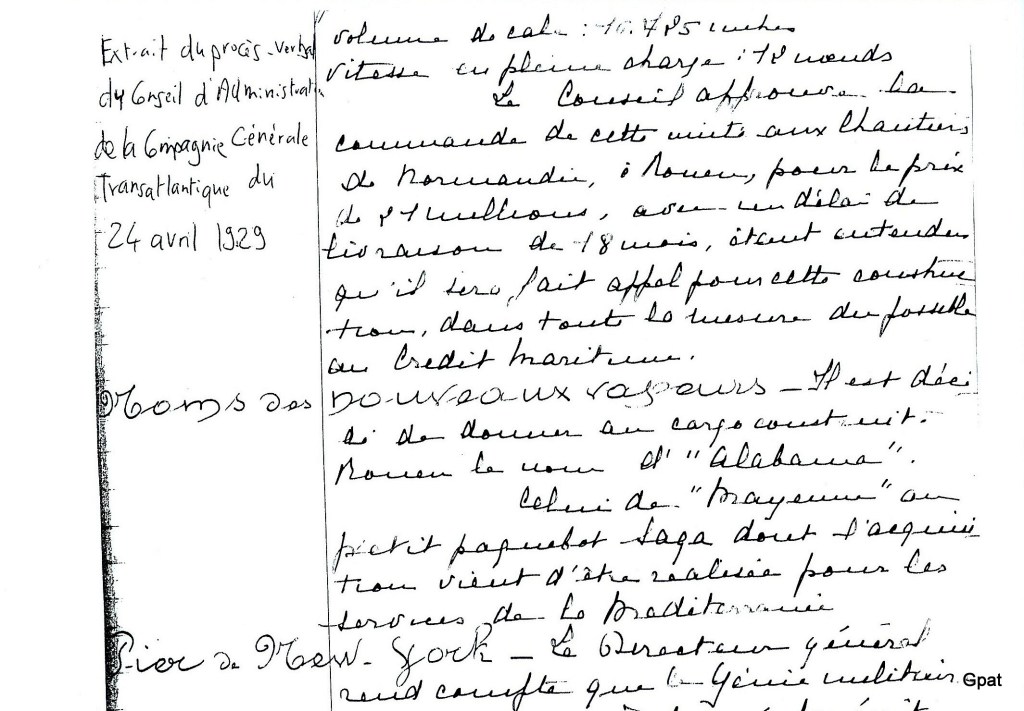 Extrait du procès-verbal
du Conseil d'Administrat
de la Compagnie Générale
Transatlantique du
24 avril 1929
volume de cale : 10.485 mètres
vitesse en pleine charge : 12 nœuds
Le Conseil approuve la
commande de cette unité aux Chantiers
de Normandie, à Rouen, pour le prix
de 21 millions, avec un délai de
livraison de 18 mois, étant entendu
qu'il sera fait appel pour cette construc
tion, dans toute la mesure du possible
au Crédit Maritime.
Noms des nouveaux vapeurs - Il est déci
dé de donner au cargo construit
Rouen le nom d'"Alabama".
Celui de "Mayenne" au
petit paquebot Saga dont l'acquisi
tion vient d'être réalisée pour les
services de la Méditerranée
Pier de New-York - Le Directeur général
rend compte que le Génie militaire
Gpat